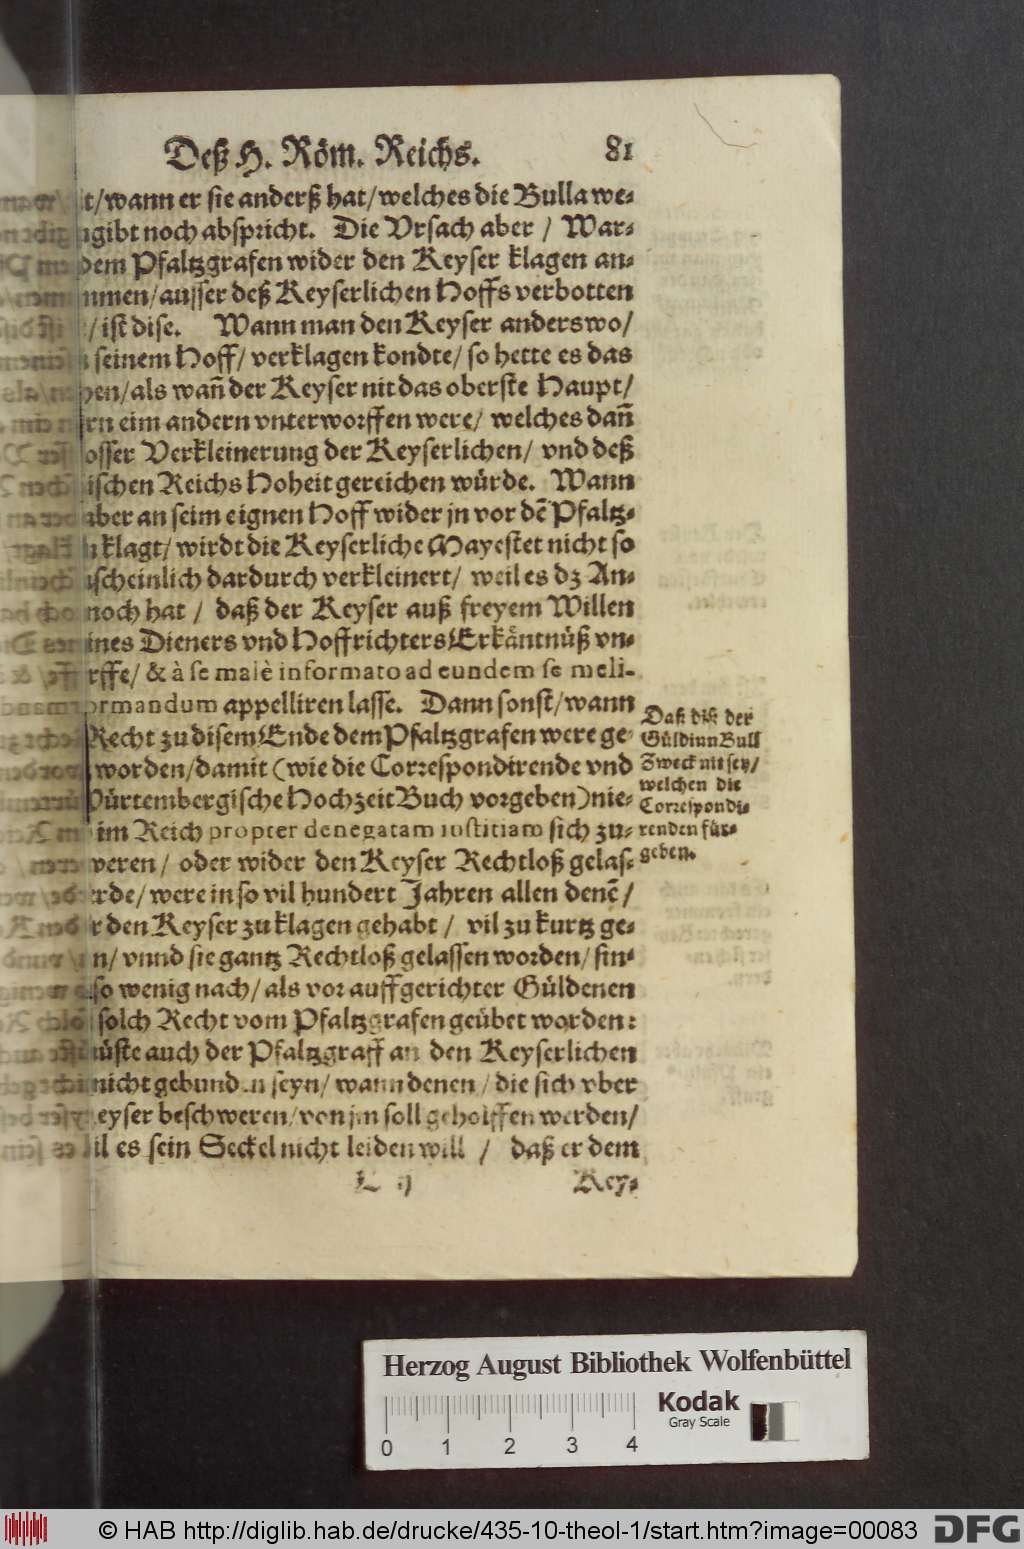 Deß H. Röm. Reichs. 81
t/wann er sie anderß hat/welches die Bulla we-
gibt noch abspricht. Die Vrsach aber / War-
dem Pfaltzgrafen wider den Keyser klagen an-
nmen/ausser deß Keyserlichen Hoffs verbotten
/ist dise. Wann man den Keyser anderswo/
seinem Hoff/ verklagen kondte/ so hette es das
hen/als wañ der Keyser nit das oberste Haupt/
rn eim andern vnterworffen were/ welches dañ
osser Verkleinerung der Keyserlichen/ vnd deß
ischen Reichs Hoheit gereichen würde. Wann
aber an seim eignen Hoff wider jn vor dē Pfaltz-
klagt/ wirdt die Keyserliche Mayestet nicht so
scheinlich dardurch verkleinert/ weil es dz An-
noch hat / daß der Keyser auß freyem Willen
ines Dieners vnd Hoffrichters Erkäntnüß vn-
rffe/ & à se malè informato ad eundem se meli-
ormandum appelliren lasse. Dann sonst/wann
Recht zu disem Ende dem Pfaltzgrafen were ge-
worden/damit (wie die Correspondirende vnd
ürtembergische Hochzeit Buch vorgeben) nie-
im Reich propter denegatam iustitiam sich zu-
weren/ oder wider den Keyser Rechtloß gelas-
rde/ were in so vil hundert Jahren allen denē/
r den Keyser zu klagen gehabt / vil zu kurtz ge-
n/ vnnd sie gantz Rechtloß gelassen worden/ sin-
so wenig nach/ als vor auffgerichter Güldenen
solch Recht vom Pfaltzgrafen geübet worden:
üste auch der Pfaltzgraff an den Keyserlichen
nicht gebunden seyn/ wann denen / die sich vber
eyser beschweren/ von jm soll geholffen werden/
il es sein Seckel nicht leiden will / daß er dem
Key-
Daß diß der
Güldinn Bull
Zweck nit sey/
welchen die
Correspondi-
renden für-
geben.
Herzog August Bibliothek Wolfenbüttel
Kodak
Gray Scale
0 1 2 3 4
© HAB http://diglib.hab.de/drucke/435-10-theol-1/start.htm?image=00083
DFG